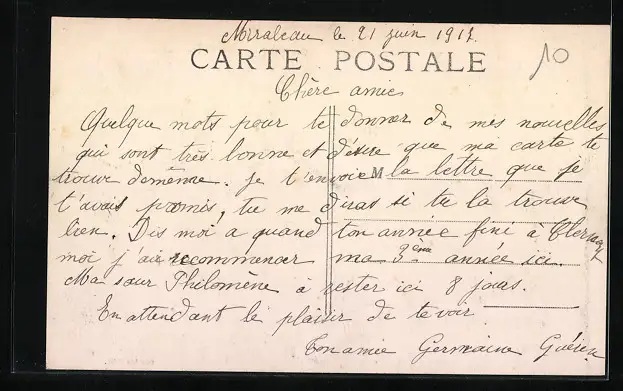 Mirabeau le 21 juin 1917.
CARTE POSTALE
10
Chère amie
Quelque mots pour te donner de mes nouvelles
qui sont très bonne et désire que ma carte te
trouve de même. je t'envoie la lettre que je
t'avais promis, tu me diras si tu la trouve
bien. Dis moi a quand ton année fini à
moi j'ai recommencer ma 3ème année ici.
Ma sœur Philomène à rester ici 8 jours.
En attendant le plaisir de te voir
Ton amie Germaine